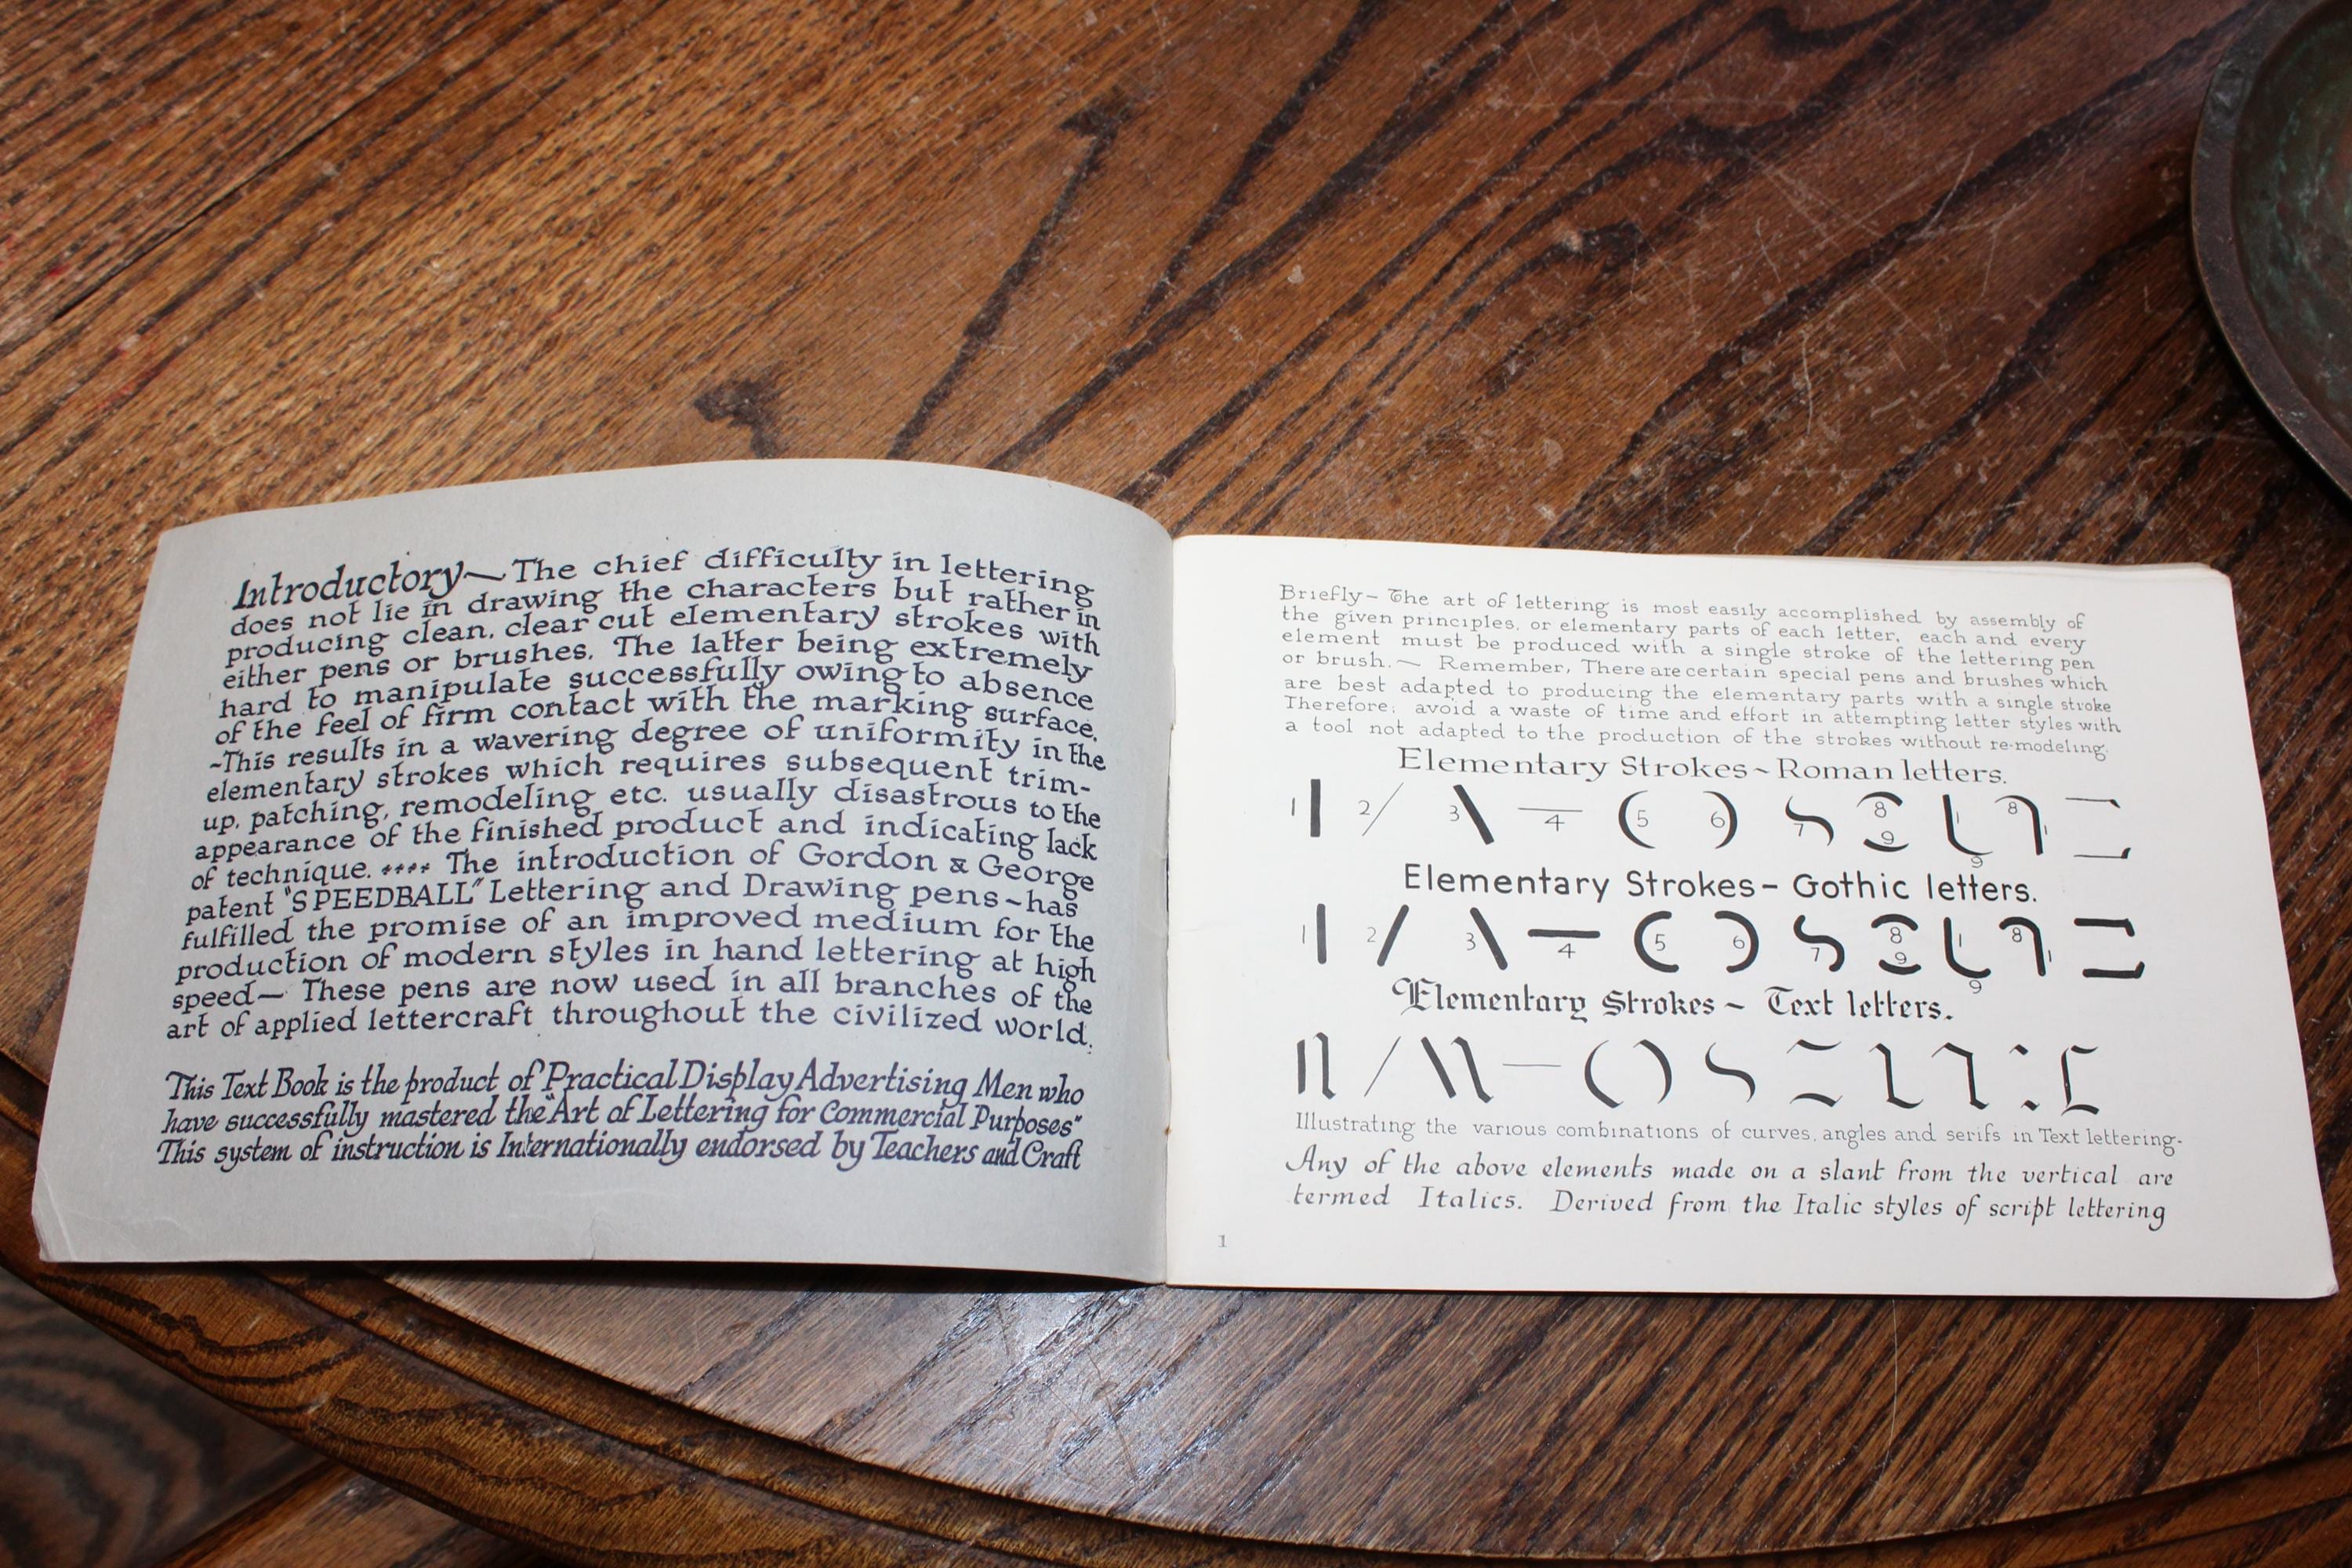 Introductory~ The chief difficulty in lettering
does not lie in drawing the characters but rather in
producing clean, clear cut elementary strokes with
either pens or brushes. The latter being extremely
hard to manipulate successfully owing to absence
of the feel of firm contact with the marking surface.
~This results in a wavering degree of uniformity in the
elementary strokes which requires subsequent trim-
up, patching, remodeling etc. usually disastrous to the
appearance of the finished product and indicating lack
of technique. **** The introduction of Gordon & George
patent "SPEEDBALL" Lettering and Drawing pens~has
fulfilled the promise of an improved medium for the
production of modern styles in hand lettering at high
speed— These pens are now used in all branches of the
art of applied lettercraft throughout the civilized world.
This Text Book is the product of Practical Display Advertising Men who
have successfully mastered the "Art of Lettering for Commercial Purposes"
This system of instruction is Internationally endorsed by Teachers and Craft
Briefly— The art of lettering is most easily accomplished by assembly of
the given principles, or elementary parts of each letter, each and every
element must be produced with a single stroke of the lettering pen
or brush.~ Remember, There are certain special pens and brushes which
are best adapted to producing the elementary parts with a single stroke
Therefore; avoid a waste of time and effort in attempting letter styles with
a tool not adapted to the production of the strokes without re-modeling.
Elementary Strokes~Roman letters.
1 2 3 4 5 6 7 8 9 1 9 8 1
Elementary Strokes– Gothic letters.
1 2 3 4 5 6 7 8 9 1 9 8 1
Elementary Strokes ~ Text letters.
Illustrating the various combinations of curves, angles and serifs in Text lettering.
Any of the above elements made on a slant from the vertical are
termed Italics. Derived from the Italic styles of script lettering
1